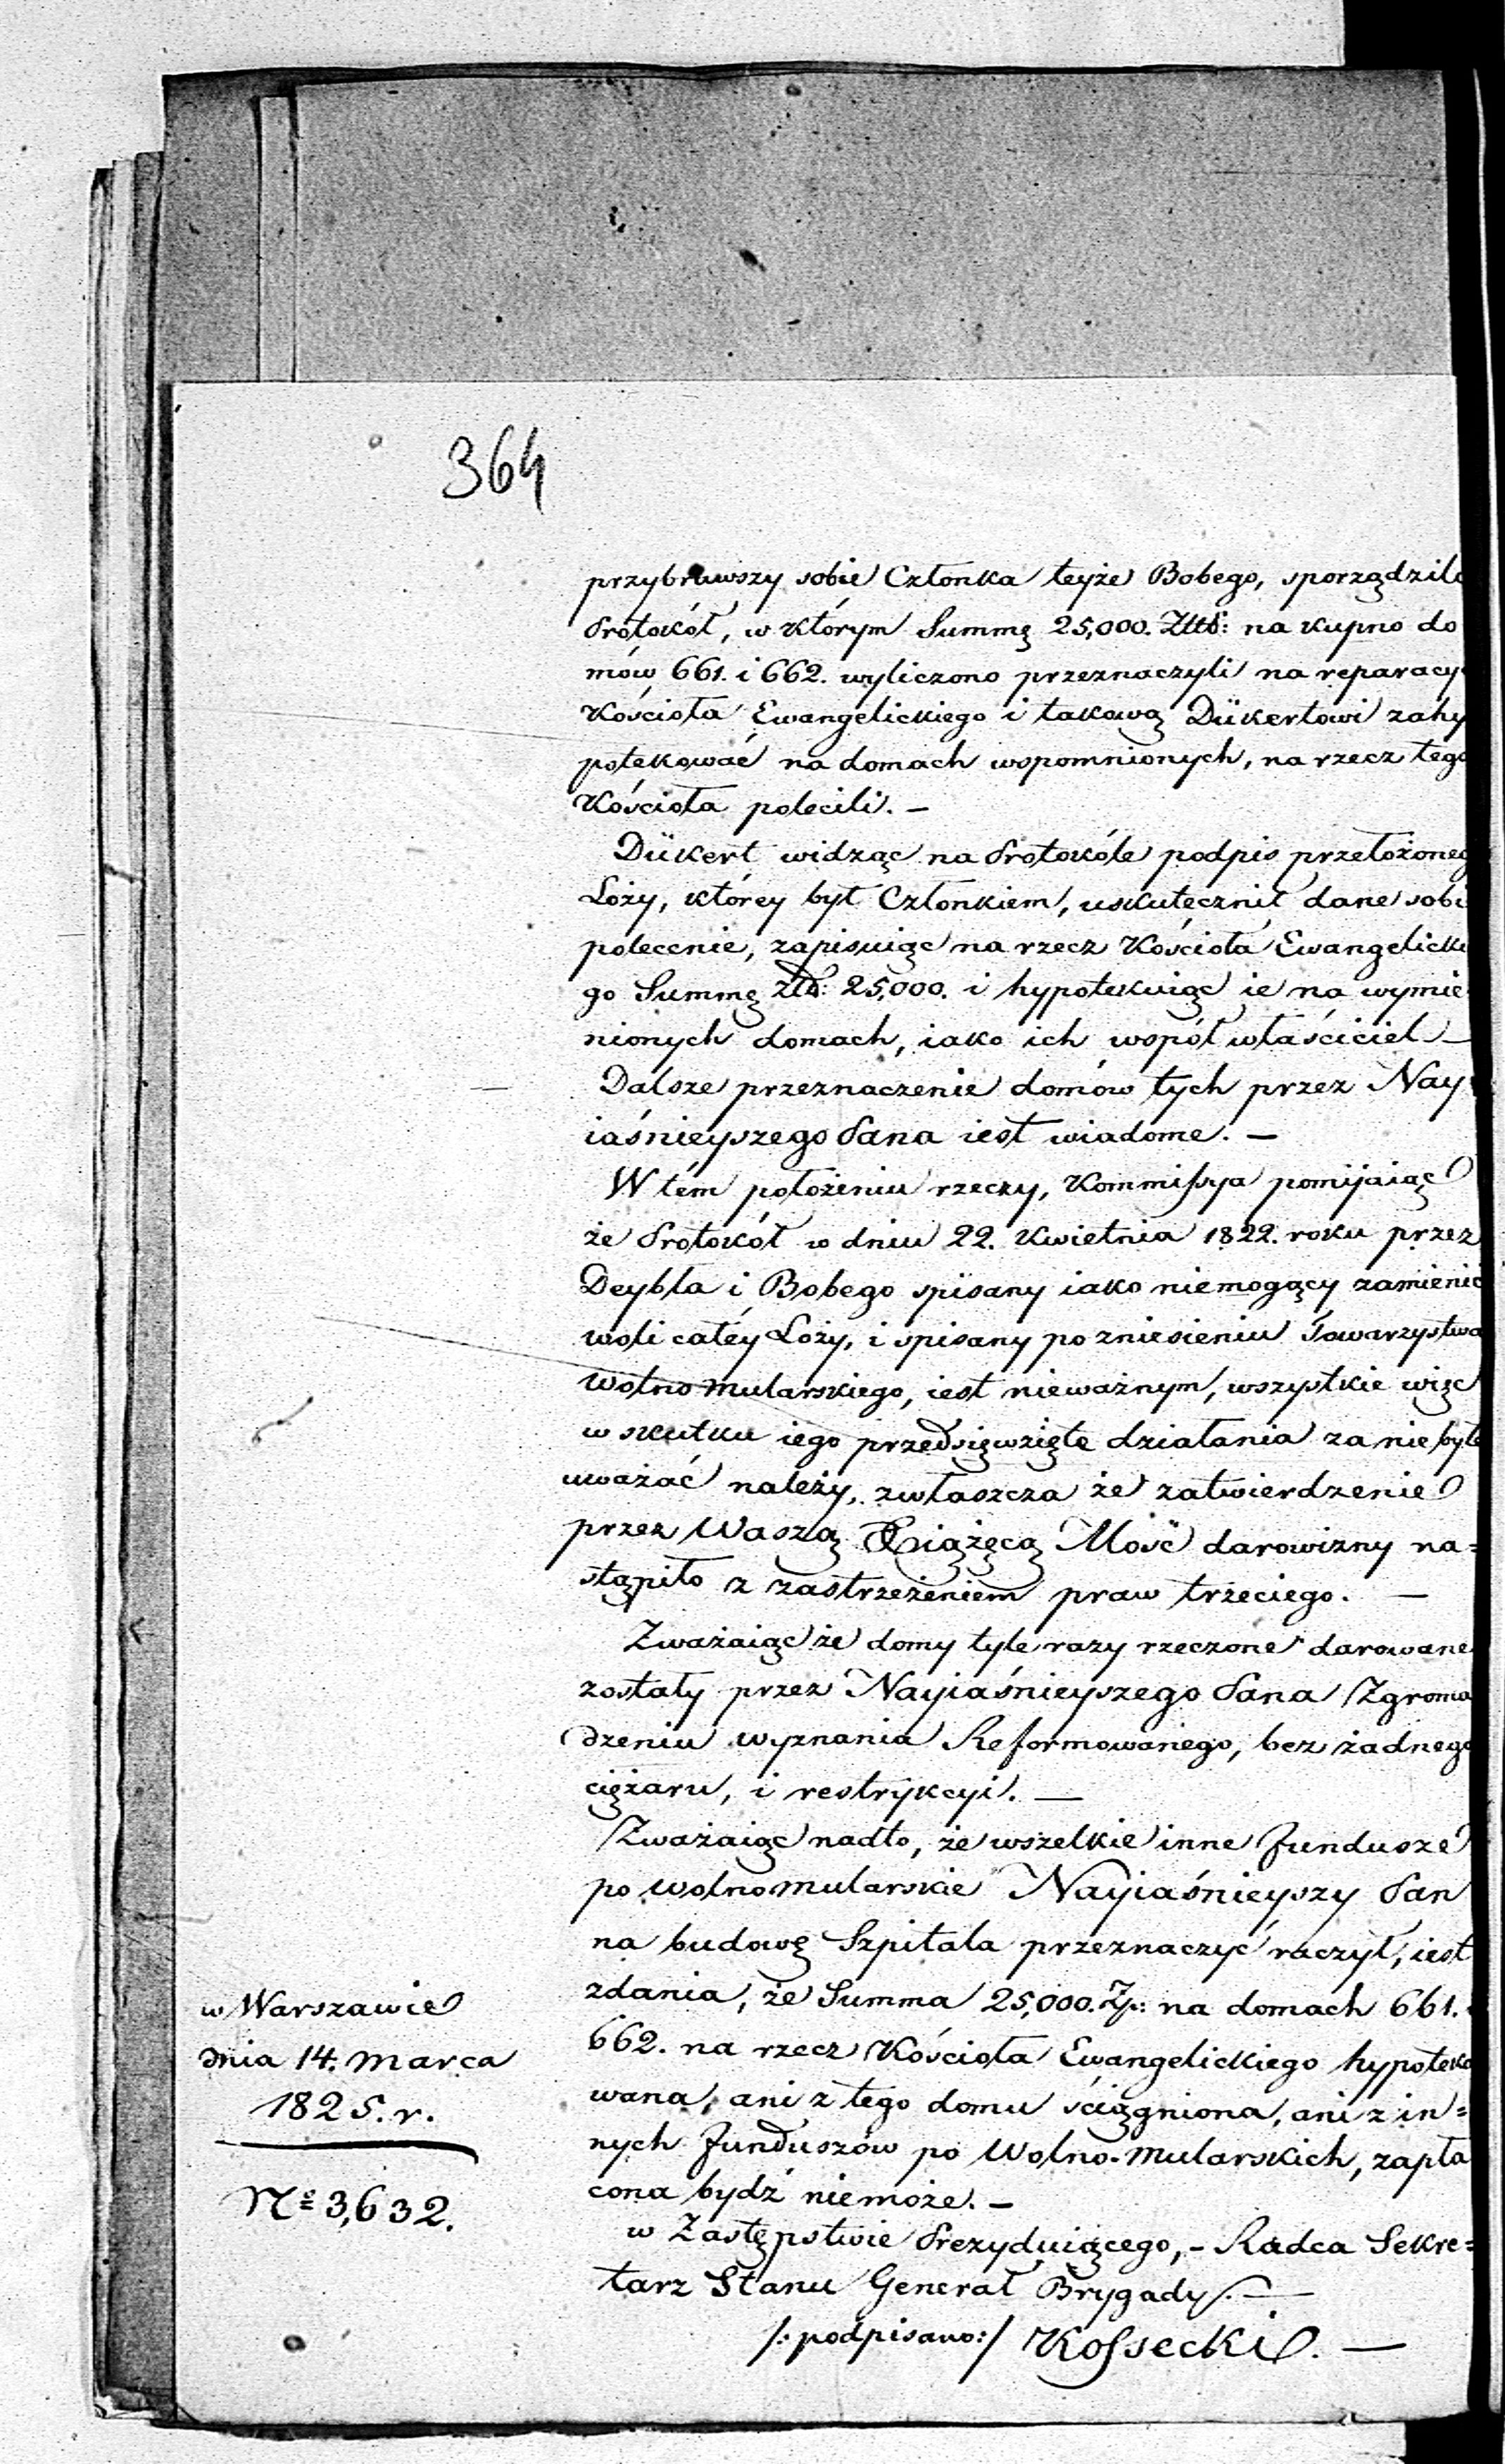 364
przybrawszy sobie Członka teyże Bobego, sporządzili
Protokół, w którym Summę 25,000. Złtt: na kupno do
mów 661. i 662. wyliczono przeznaczyli na reparacy
Kościoła Ewangelickiego i takową Dükertowi zahy
potekować na domach wspomnionych, na rzecz tego
Kościoła polecili. —
Dükert widząc na Protokóle podpis przełożoneg
Loży, którey był Członkiem, uskutecznił dane sobi
polecenie, zapisuiąc na rzecz Kościoła Ewangelicki
go Summę złtt: 25,000. i hypotekuiąc ie na wymie
nionych domach, iako ich współwłaściciel —
Dalsze przeznaczenie domów tych przez Nay
iaśnieyszego Pana iest wiadome. —
W tém położeniu rzeczy, Kommissya pomijaiąc
że Protokół w dniu 22. Kwietnia 1822. roku przez
Deybla i Bobego spisany iako niemogący zamienić
woli całéy Loży, i spisany po zniesieniu Towarzystwa
Wolno mularskiego, iest nieważnym, wszystkie więc
w skutku iego przedsięwzięte działania za niebyłe
uważać należy, zwłaszcza że zatwierdzenie
przez Waszą Książęcą Mość darowizny na=
stąpiło z zastrzeżeniem praw trzeciego. —
Zważaiąc że domy tyle razy rzeczone darowane
zostały przez Nayiaśnieyszego Pana Zgroma
dzeniu wyznania Reformowanego, bez żadnego
ciężaru, i restrykcyi. —
Zważaiąc nadto, że wszelkie inne fundusze
po wolno mularskie Nayiaśnieyszy Pan
na budowę Szpitala przeznaczyć raczył, iest
zdania, że Summa 25,000. Zp: na domach 661.
662. na rzecz Kościoła Ewangelickiego hypoteko
wana, ani z tego domu ściągniona, ani z in=
nych funduszów po Wolno-mularskich, zapła
cona bydź niemoże. —
w Zastępstwie Prezyduiącego, - Radca Sekre=
tarz Stanu Generał Brygady. —
/: podpisano:/ Kossecki. —
w Warszawie
dnia 14. Marca
1825. r.
Nº 3,632.